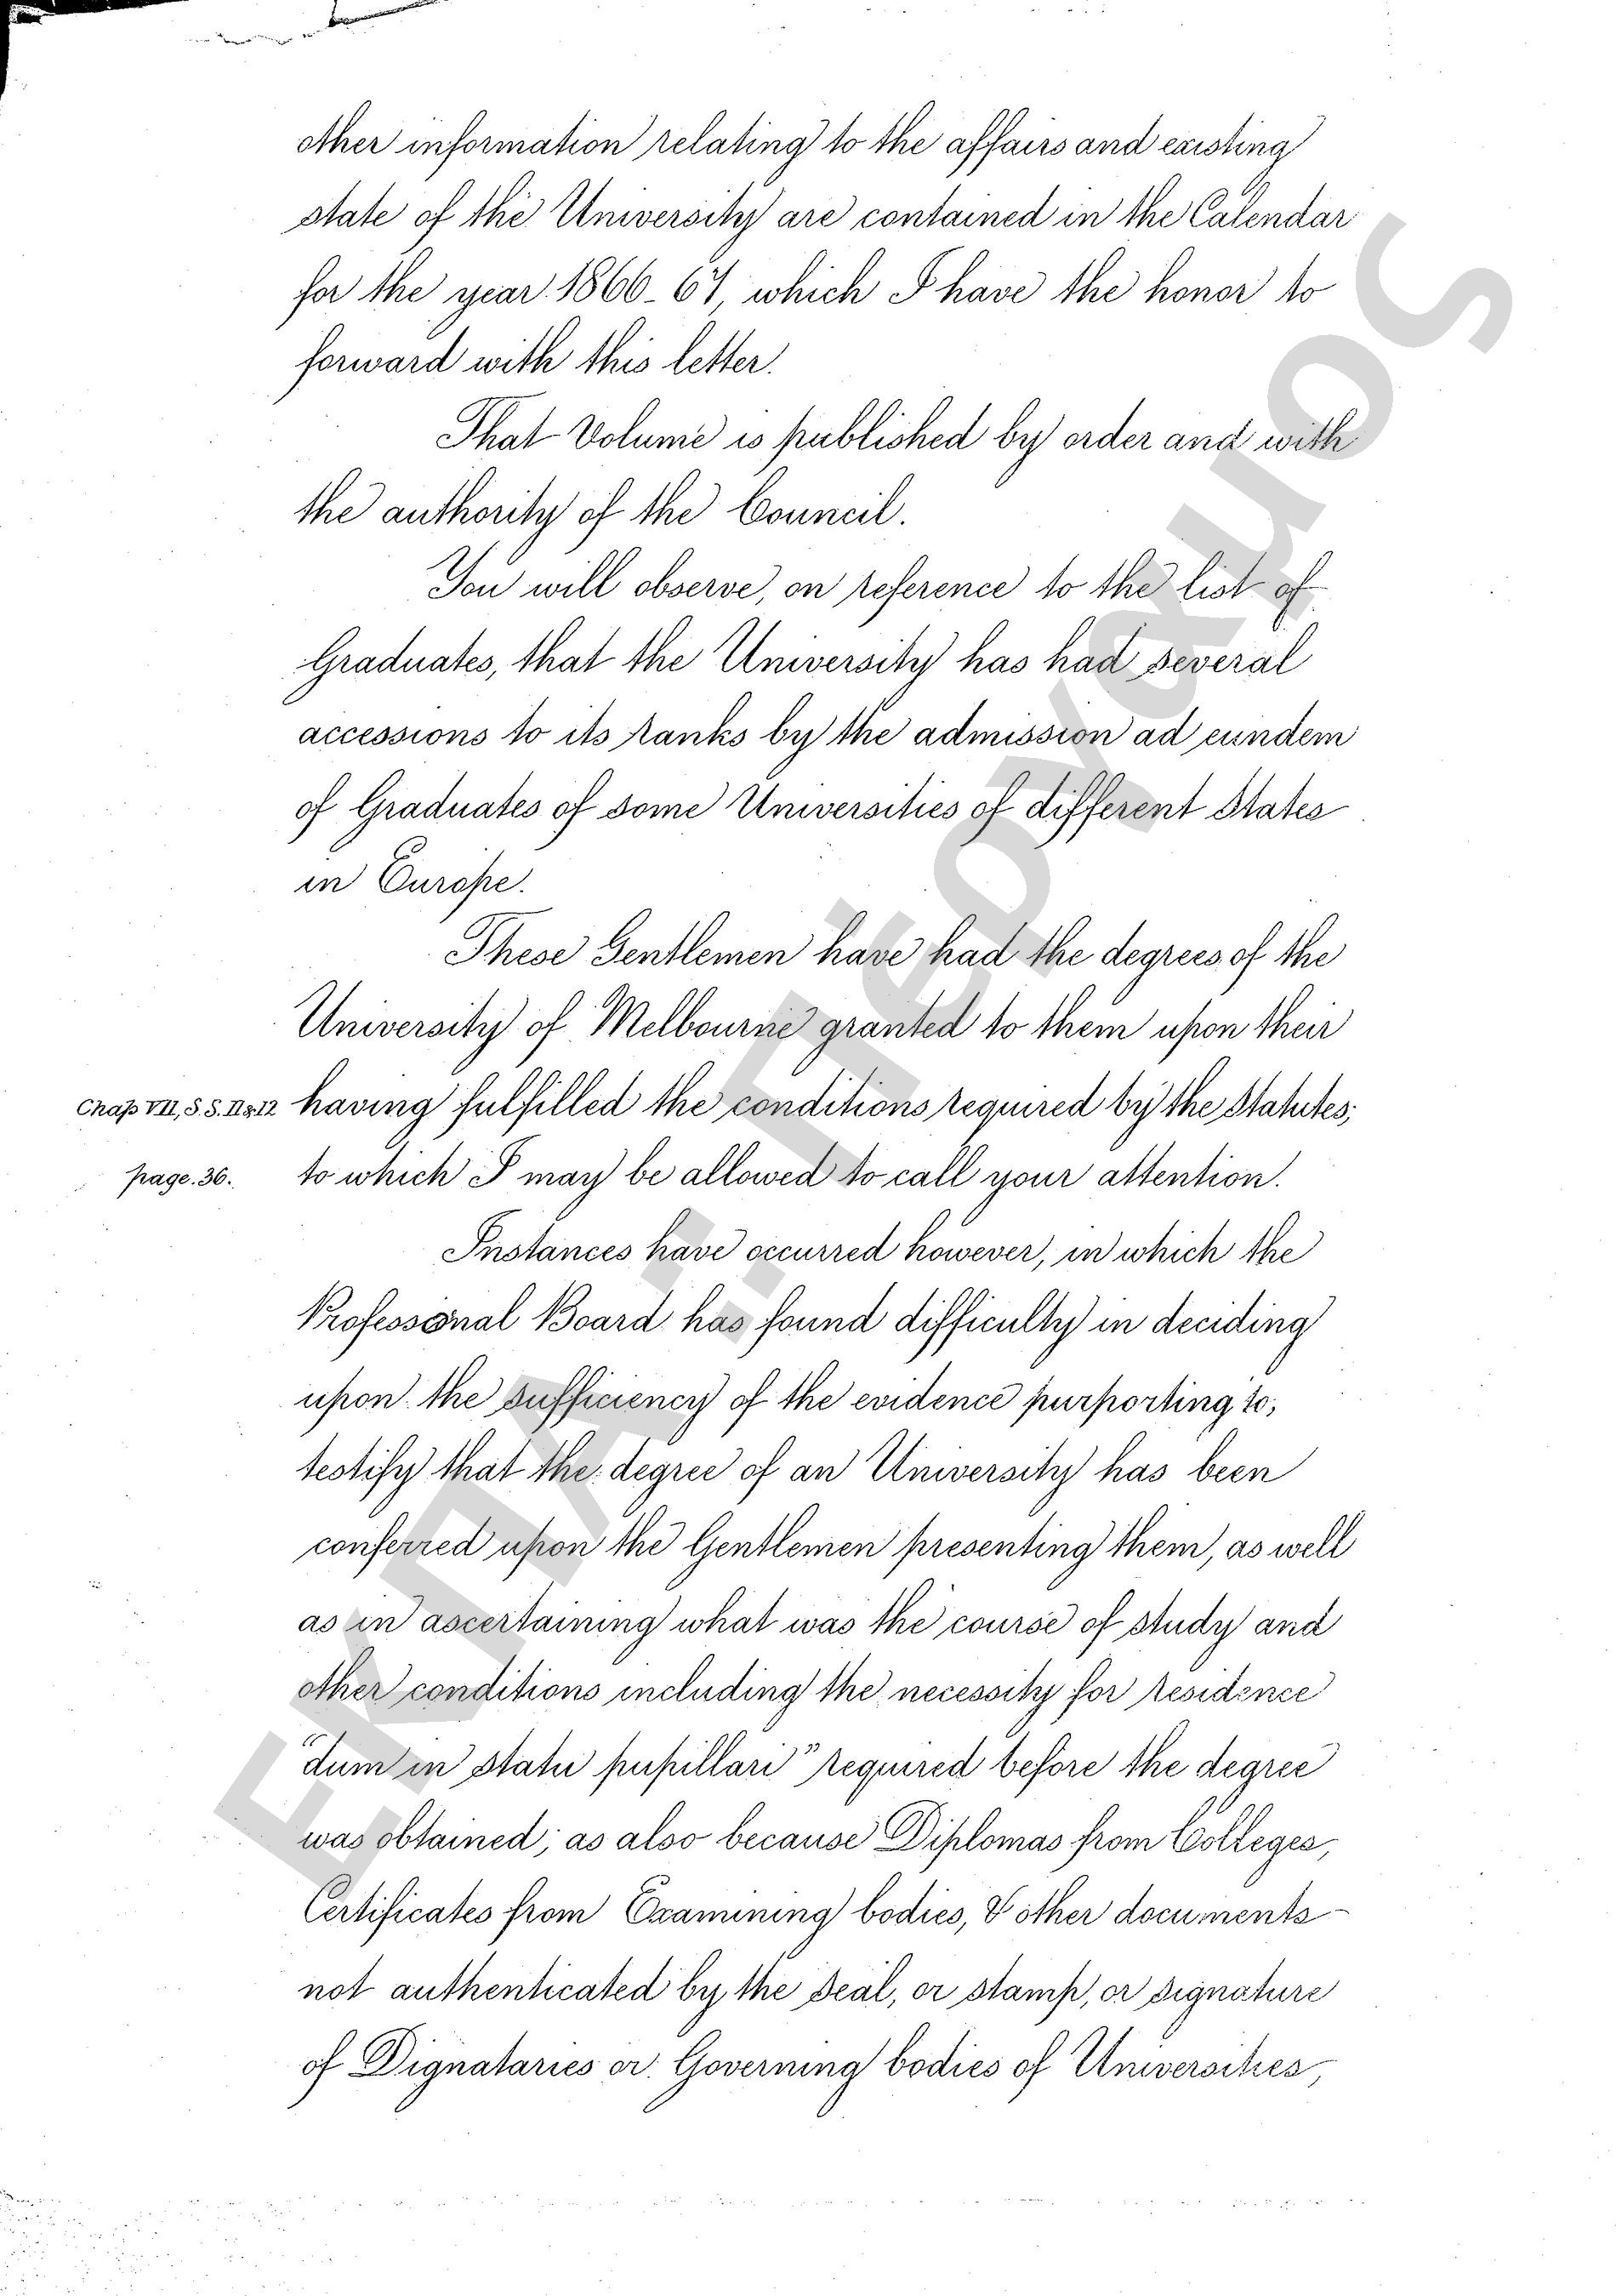 other information relating to the affairs and existing
state of the University are contained in the Calendar
for the year 1866-67, which I have the honor to
forward with this letter.
That Volume is published by order and with
the authority of the Council.
You will observe, on reference to the list of
Graduates, that the University has had several
accessions to its ranks by the admission ad eundem
of Graduates of some Universities of different States
in Europe.
These Gentlemen have had the degrees of the
University of Melbourne granted to them upon their
Chap VII, S.S. 11&12 having fulfilled the conditions required by the Statutes;
page. 36. to which I may be allowed to call your attention.
Instances have occurred however, in which the
Professorial Board has found difficulty in deciding
upon the sufficiency of the evidence purporting to,
testify that the degree of an University has been
conferred upon the Gentlemen presenting them, as well
as in ascertaining what was the course of study and
other conditions including the necessity for residence
"dum in statu pupillari" required before the degree
was obtained; as also because Diplomas from Colleges,
Certificates from Examining bodies, & other documents
not authenticated by the Seal, or stamp, or signature
of Dignataries or Governing bodies of Universities,